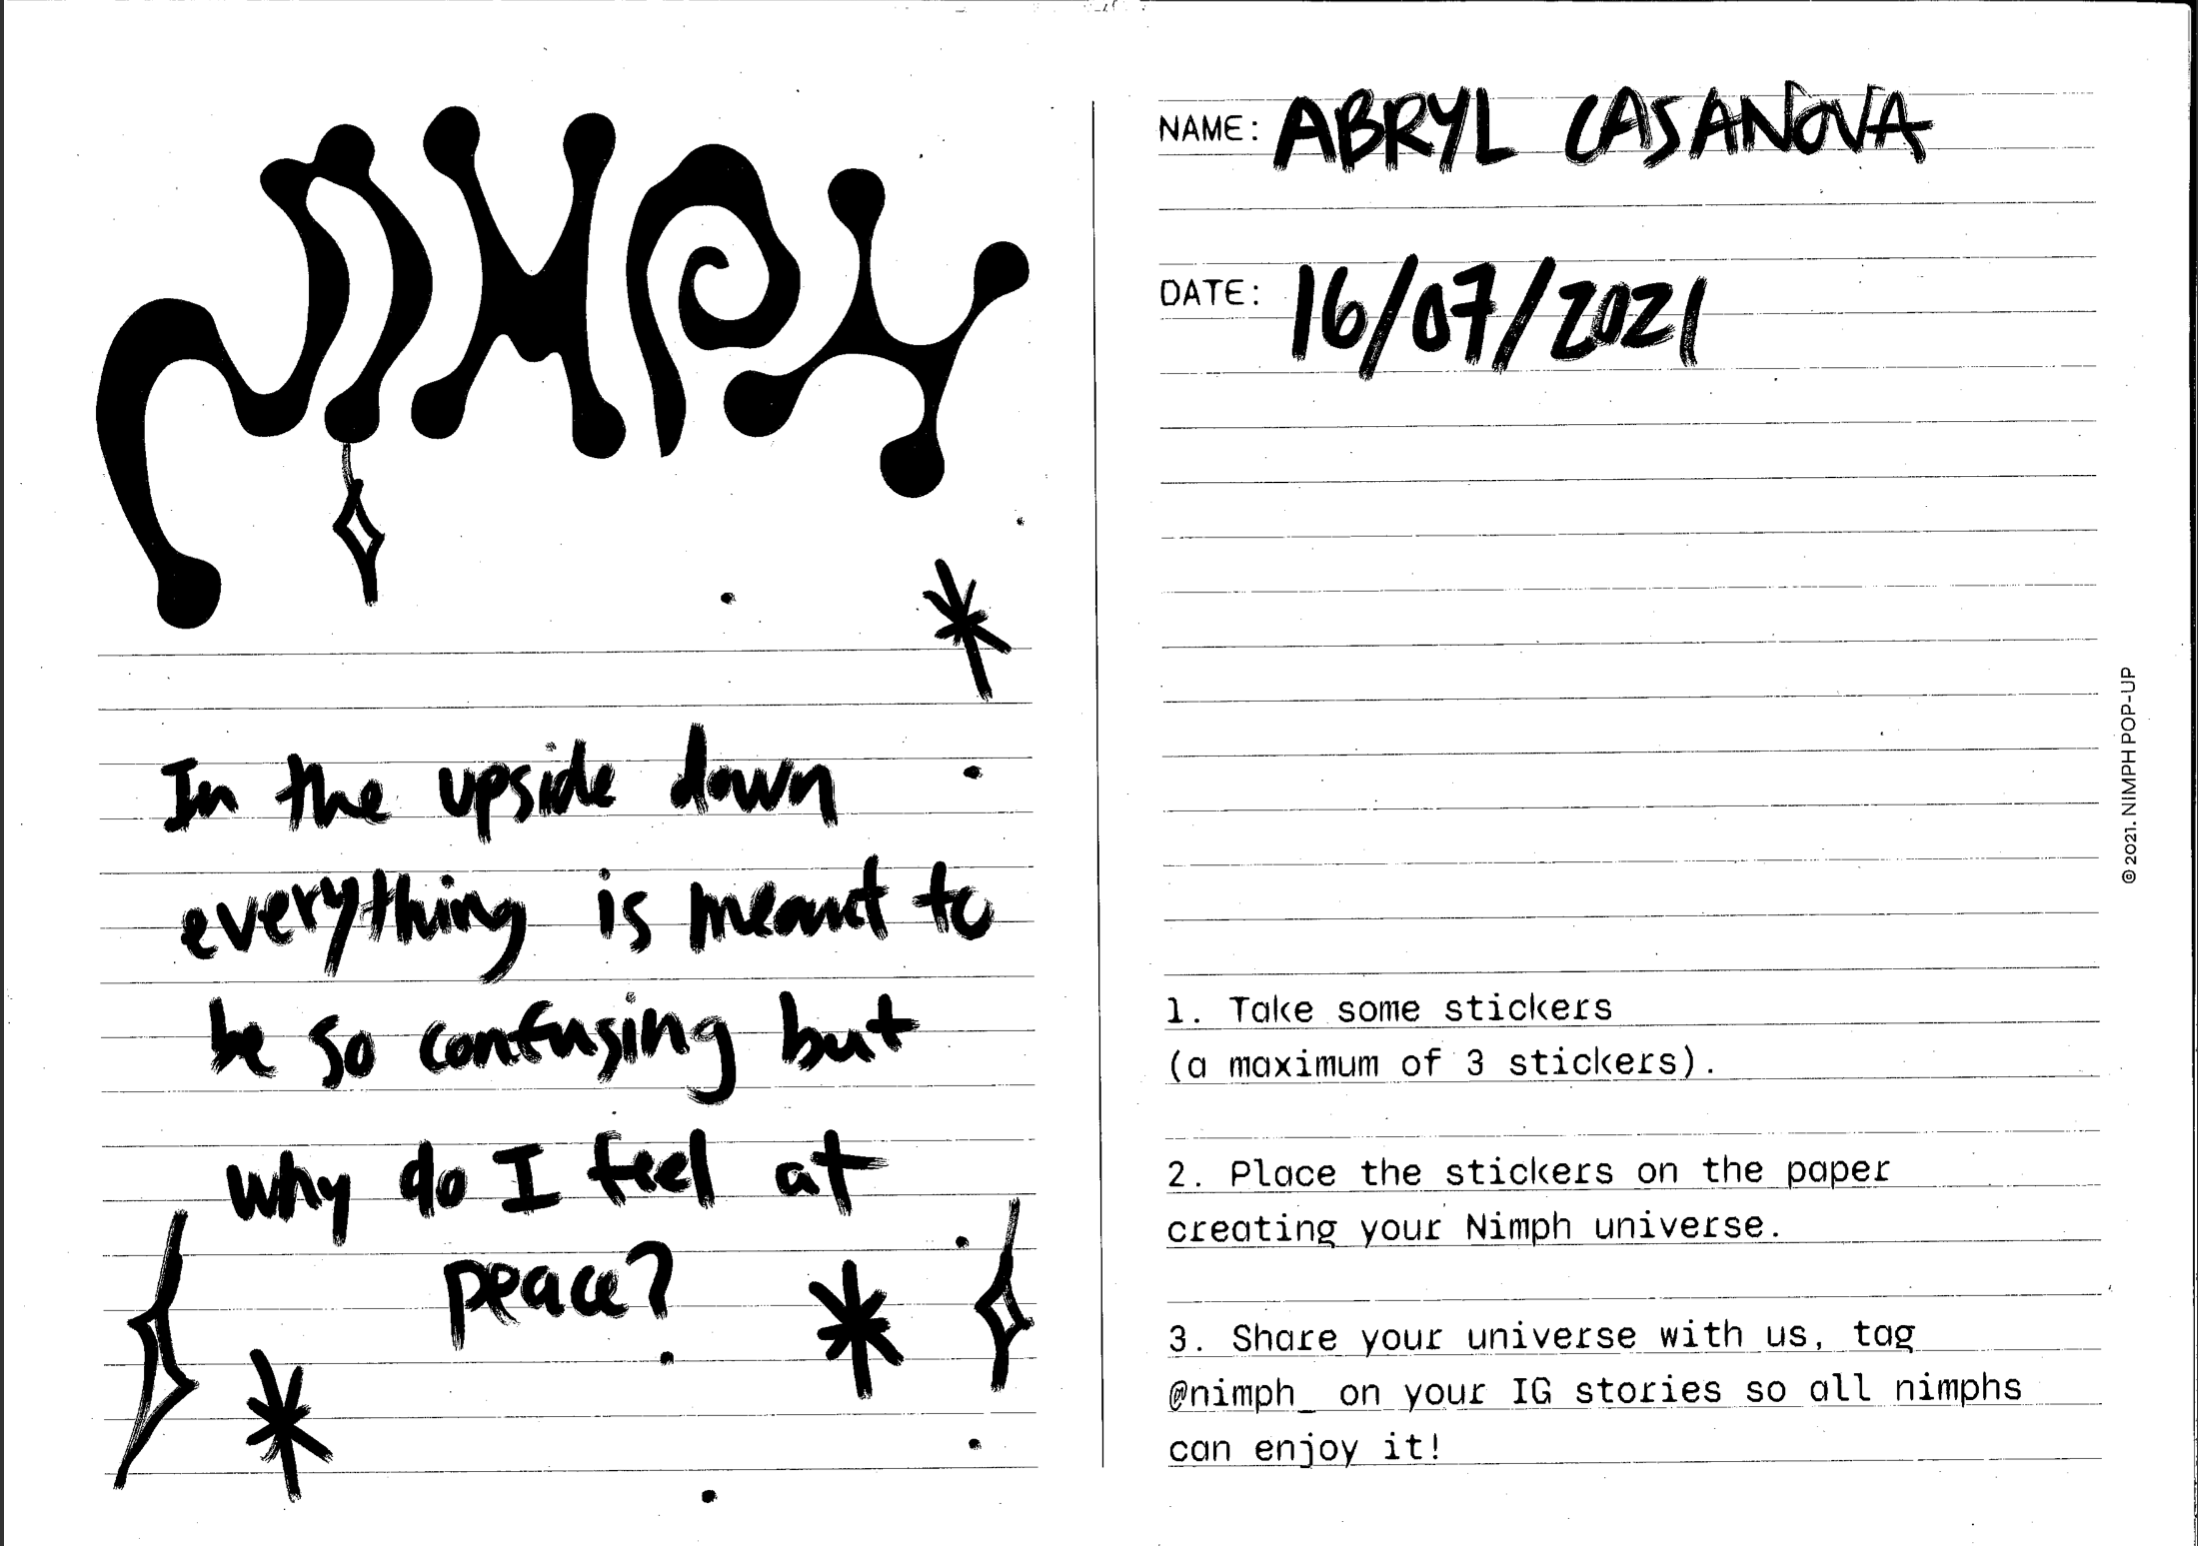 NIMPH
In the upside down
everything is meant to
be so confusing but
why do I feel at
peace?
NAME: ABRYL CASANOVA
DATE: 16/07/2021
1. Take some stickers
(a maximum of 3 stickers).
2. Place the stickers on the paper
creating your Nimph universe.
3. Share your universe with us, tag
@nimph_ on your IG stories so all nimphs
can enjoy it!
© 2021. NIMPH POP-UP